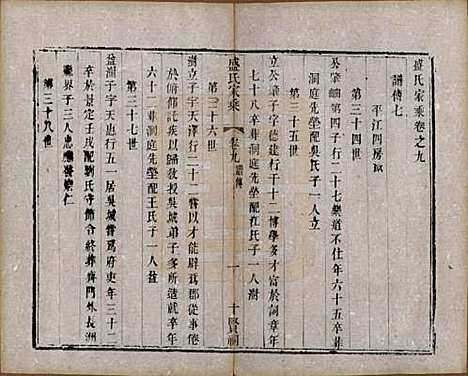 盛氏家乘卷之九
譜傳七
平江四房
第三十四世
公肇嶠第四子行二十七樂道不仕年六十五卒葬
洞庭先塋配吳氏子一人立
第三十五世
立公肇子字德建行于十二博學多才富於詞章年
七十八卒葬洞庭先塋配石氏子一人澍
盛氏家乘
卷九 譜傳
一
十賢祠
第三十六世
澍立子字天澤行二十二嘗以才能辟爲郡從事倦
於俯仰託疾以歸敎授吳城弟子多所造就卒年
六十二葬洞庭先塋配王氏子一人益
第三十七世
益澍子字天惠行五一居吳城嘗爲府吏年三十二
卒於景定壬戌配劉氏守節令終葬齊門外長洲
界子三人忠應
第三十八世